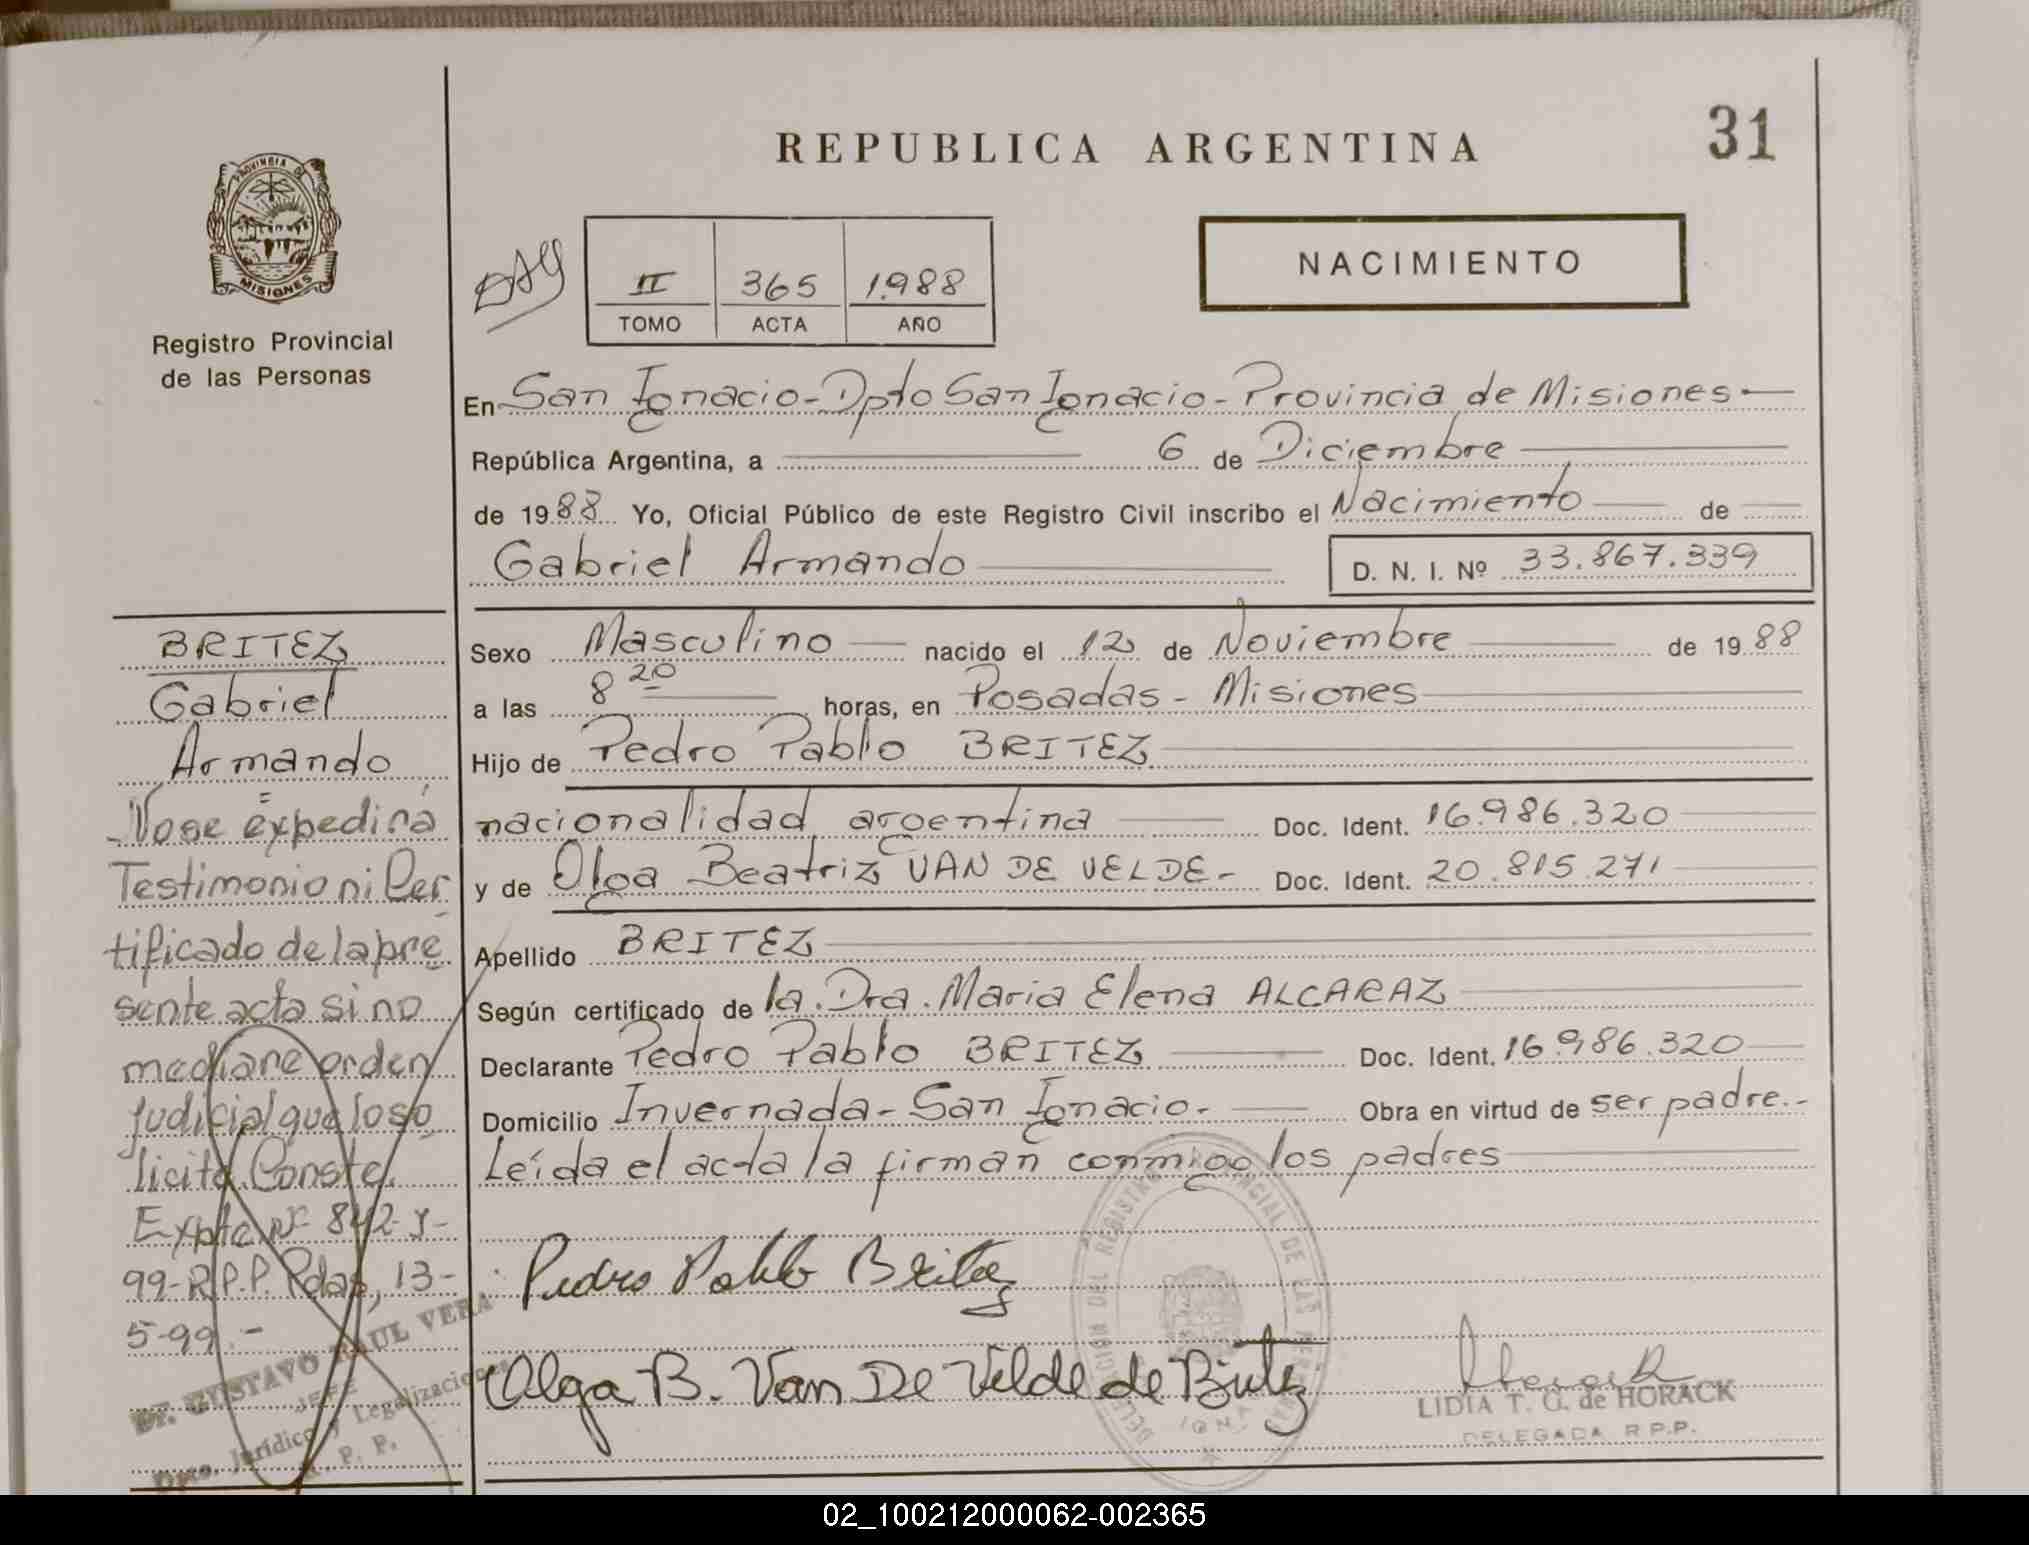 REPUBLICA ARGENTINA
31
PROVINCIA DE
MISIONES
Registro Provincial
de las Personas
II 365 1.988
TOMO ACTA AÑO
NACIMIENTO
En San Ignacio-Dpto San Ignacio-Provincia de Misiones
República Argentina, a 6 de Diciembre
de 1988 Yo, Oficial Público de este Registro Civil inscribo el Nacimiento de
Gabriel Armando
D. N. I. Nº 33.867.339
Sexo Masculino nacido el 12 de Noviembre de 1988
a las 8 20 horas, en Posadas - Misiones
Hijo de Pedro Pablo BRITEZ
nacionalidad argentina Doc. Ident. 16.986.320
y de Olga Beatriz VAN DE VELDE- Doc. Ident. 20.815.271
Apellido BRITEZ
Según certificado de la. Dra. Maria Elena ALCARAZ
Declarante Pedro Pablo BRITEZ Doc. Ident. 16.986.320
Domicilio Invernada-San Ignacio.- Obra en virtud de ser padre.-
Leída el acta la firman conmigo los padres
Pedro Pablo Britez
Olga B. Van De Velde de Britez
LIDIA T. G. de HORACK
DELEGADA R.P.P.
BRITEZ
Gabriel
Armando
No se expedirá
Testimonio ni Cer
tificado de la pre
sente acta si no
mediane orden
judicial que lo so
licita. Conste.
Expte Nº 842-J-
99-R.P.P. Pdas, 13-
5-99.-
Dr. GUSTAVO RAUL VERA
JEFE
Dpto. Jurídico y Legalizaciones
R. P. P.
02_100212000062-002365